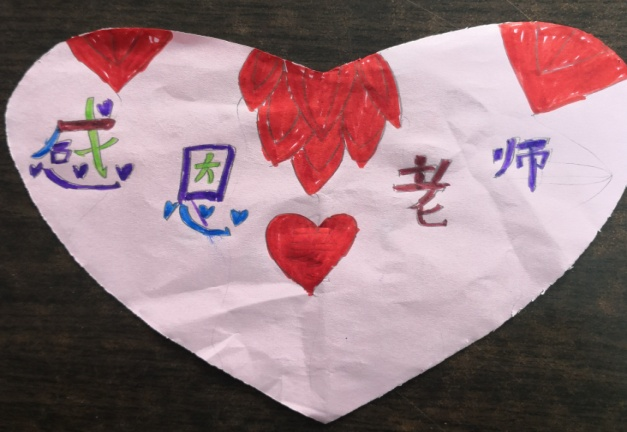 感恩老师